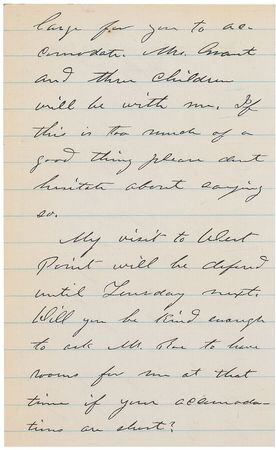 large for you to ac-
comodate. Mrs. Grant
and three children
will be with me. If
this is too much of a
good thing please dont
hesitate about saying
so.
My visit to West
Point will be defered
until Tuesday next.
Will you be kind enough
to ask Mr. Roe to have
rooms for me at that
time if your accomoda-
tions are short?